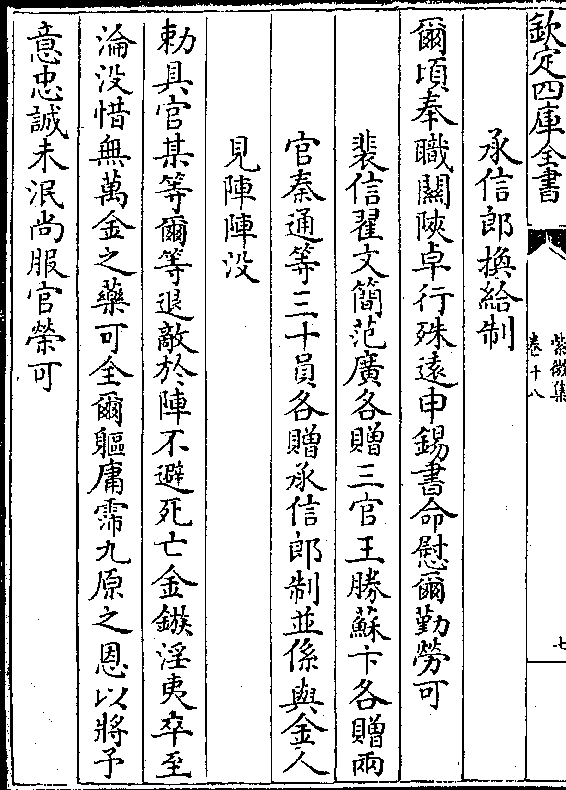 欽定四庫全書
紫微集
卷十八
七
承信郎換給制
爾頃奉職關陜卓行殊遠申錫書命慰爾勤勞可
裴信翟文簡范廣各贈三官王勝蘇卞各贈兩
官秦通等三十員各贈承信郎制並係與金人
見陣陣没
勅具官某等爾等退敵於陣不避死亡金鏃淫夷卒至
淪没惜無萬金之藥可全爾軀庸霈九原之恩以將予
意忠誠未泯尚服官榮可